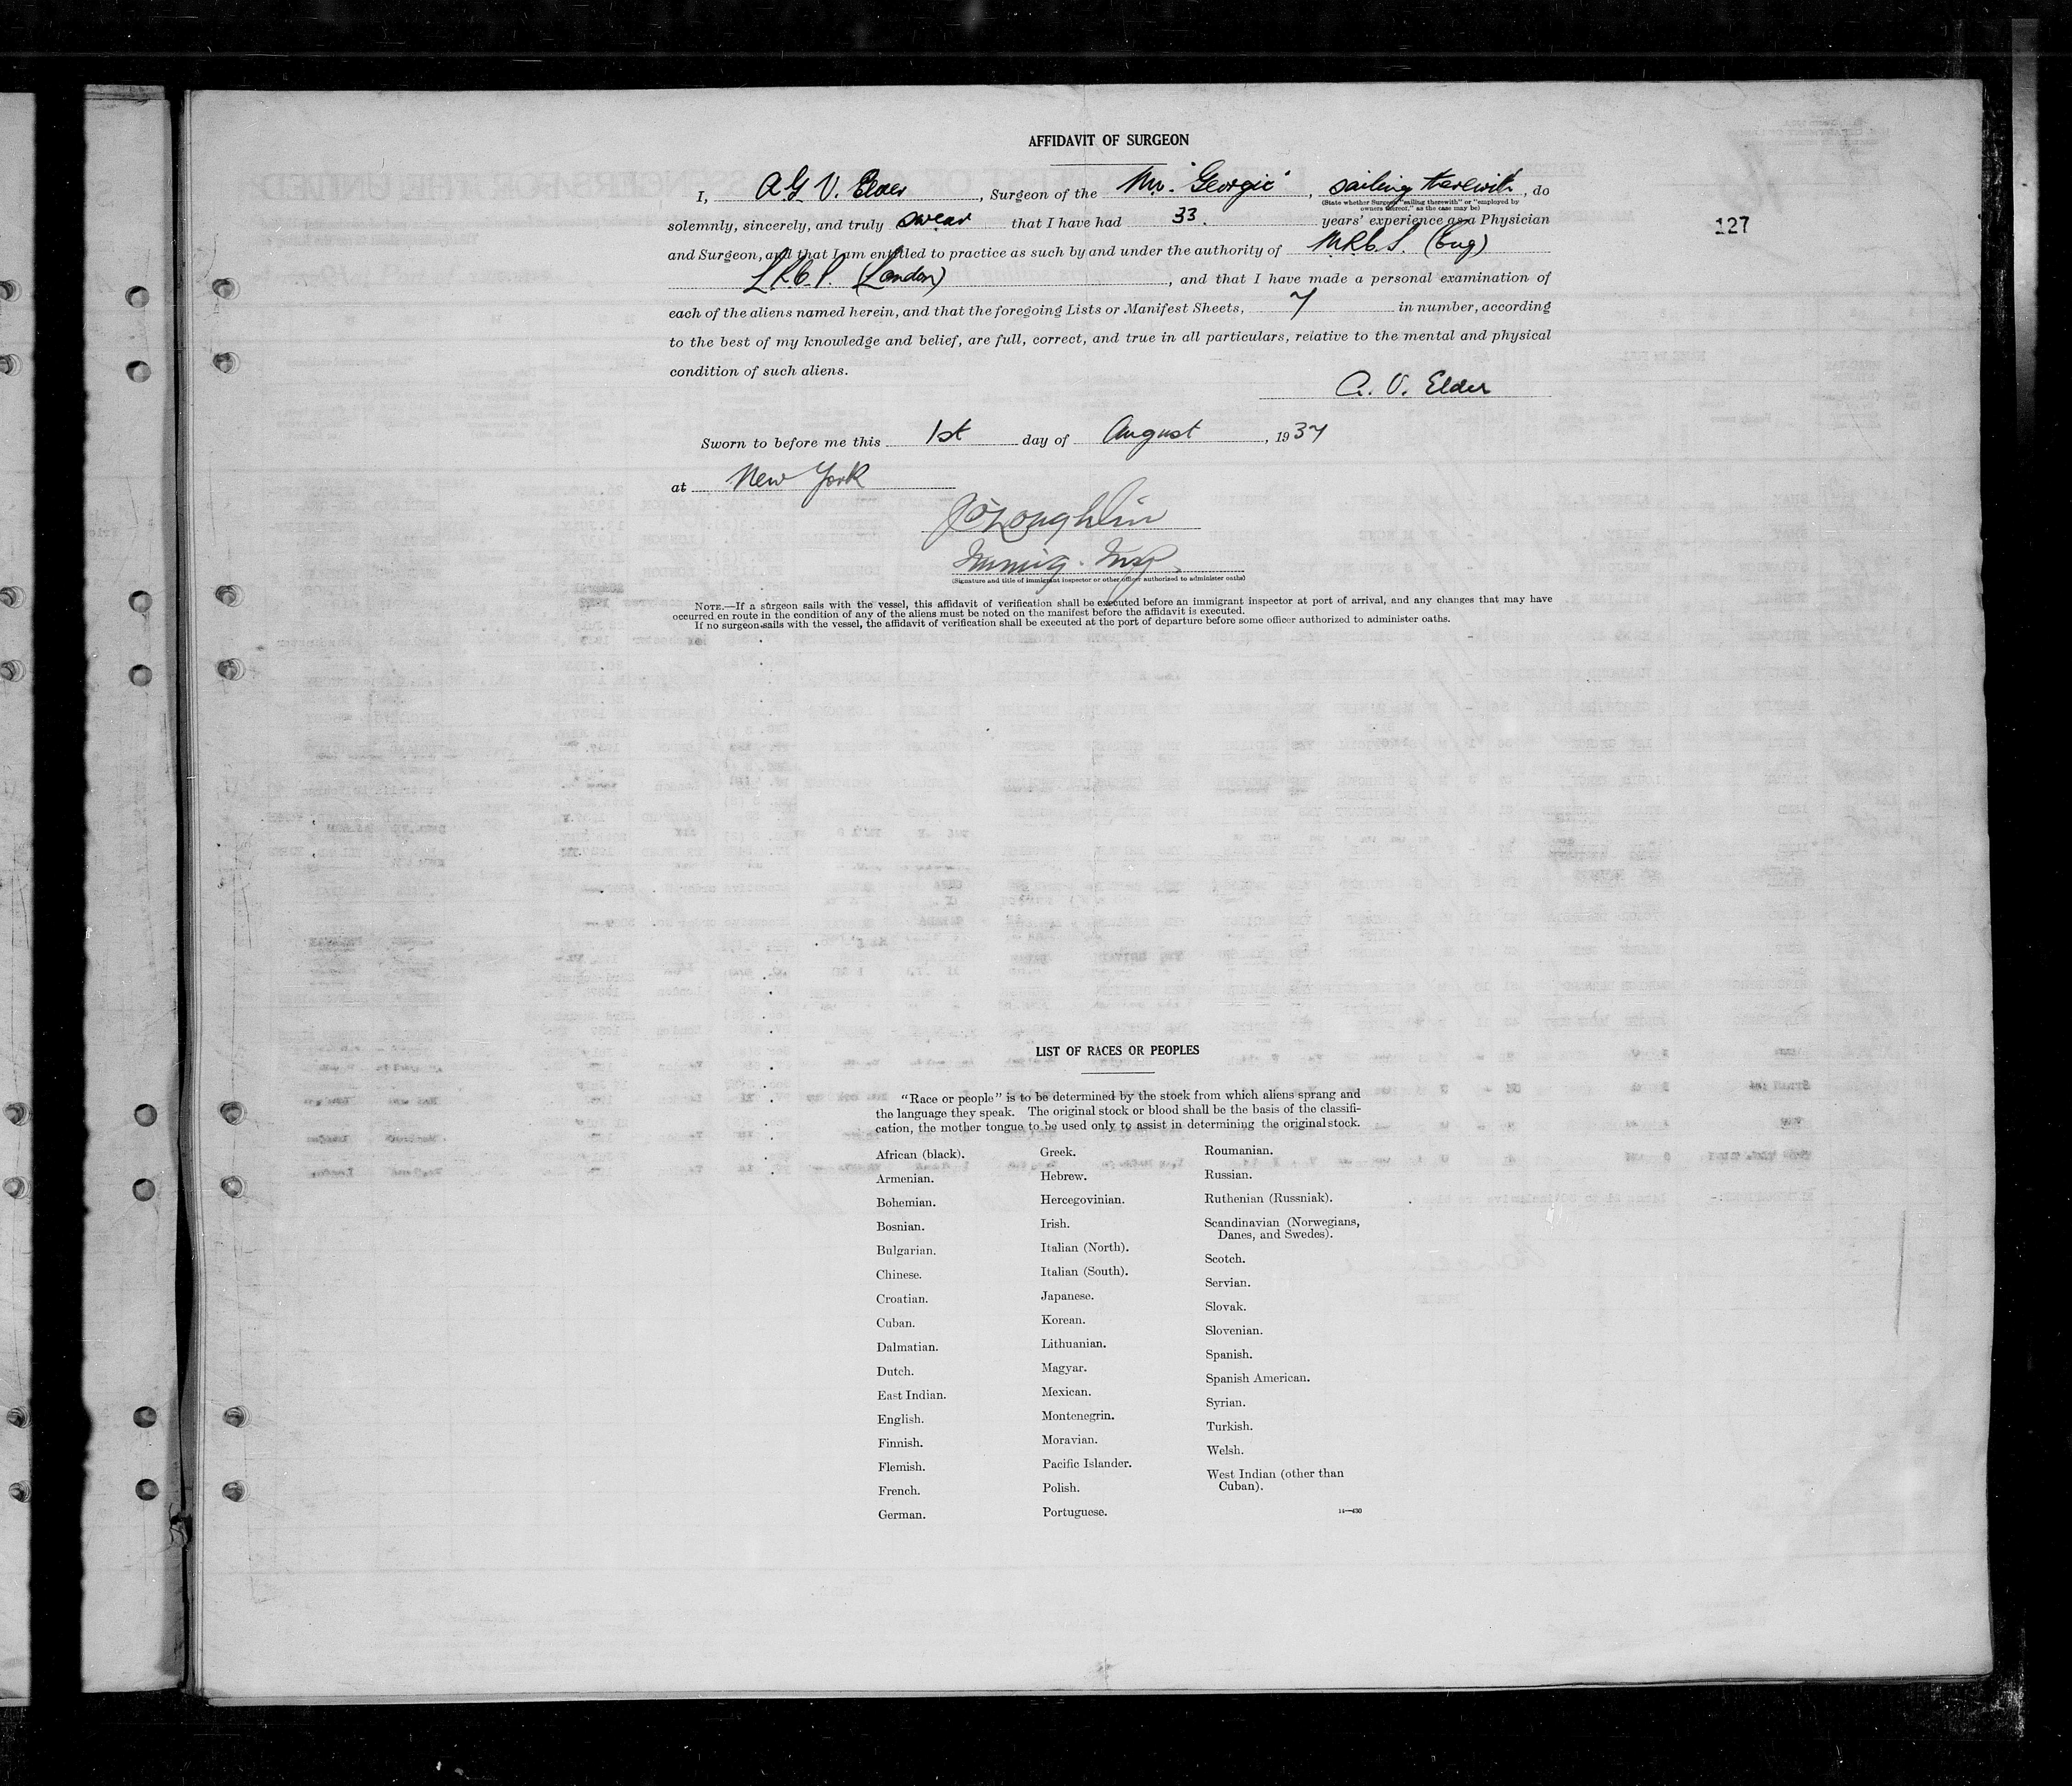 AFFIDAVIT OF SURGEON
I, A G V. Elder, Surgeon of the Mv. "Georgic", sailing therewith, do
(State whether Surgeon "sailing therewith" or "employed by
owners thereof," as the case may be)
solemnly, sincerely, and truly swear that I have had 33. years' experience as a Physician
127
and Surgeon, and that I am entitled to practice as such by and under the authority of M.R.C.S. (Eng)
L.R.C.P. (London), and that I have made a personal examination of
each of the aliens named herein, and that the foregoing Lists or Manifest Sheets, 7 in number, according
to the best of my knowledge and belief, are full, correct, and true in all particulars, relative to the mental and physical
condition of such aliens.
A. V. Elder
Sworn to before me this 1st day of August, 1937
at New York
J O'Loughlin
Immig. Insp.
(Signature and title of immigrant inspector or other officer authorized to administer oaths)
NOTE.—If a surgeon sails with the vessel, this affidavit of verification shall be executed before an immigrant inspector at port of arrival, and any changes that may have
occurred en route in the condition of any of the aliens must be noted on the manifest before the affidavit is executed.
If no surgeon sails with the vessel, the affidavit of verification shall be executed at the port of departure before some officer authorized to administer oaths.
LIST OF RACES OR PEOPLES
"Race or people" is to be determined by the stock from which aliens sprang and
the language they speak. The original stock or blood shall be the basis of the classifi-
cation, the mother tongue to be used only to assist in determining the original stock.
African (black).
Armenian.
Bohemian.
Bosnian.
Bulgarian.
Chinese.
Croatian.
Cuban.
Dalmatian.
Dutch.
East Indian.
English.
Finnish.
Flemish.
French.
German.
Greek.
Hebrew.
Hercegovinian.
Irish.
Italian (North).
Italian (South).
Japanese.
Korean.
Lithuanian.
Magyar.
Mexican.
Montenegrin.
Moravian.
Pacific Islander.
Polish.
Portuguese.
Roumanian.
Russian.
Ruthenian (Russniak).
Scandinavian (Norwegians,
Danes, and Swedes).
Scotch.
Servian.
Slovak.
Slovenian.
Spanish.
Spanish American.
Syrian.
Turkish.
Welsh.
West Indian (other than
Cuban).
14—430